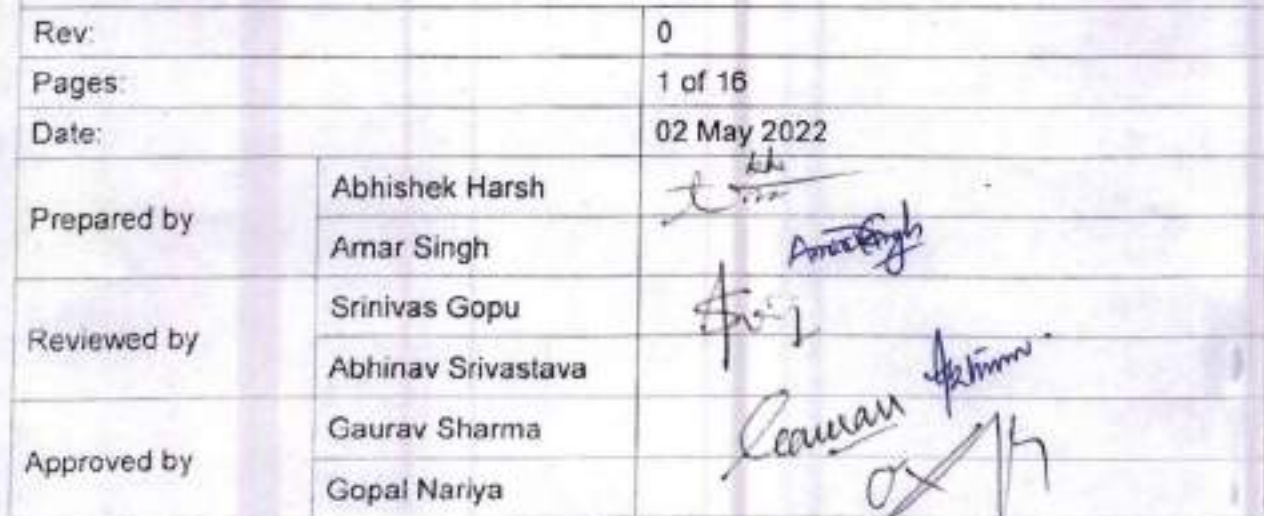 Rev: 0
Pages: 1 of 16
Date: 02 May 2022
Prepared by
Abhishek Harsh
Amar Singh
Amar Singh
Reviewed by
Srinivas Gopu
Abhinav Srivastava
Approved by
Gaurav Sharma
Gaurav
Gopal Nariya